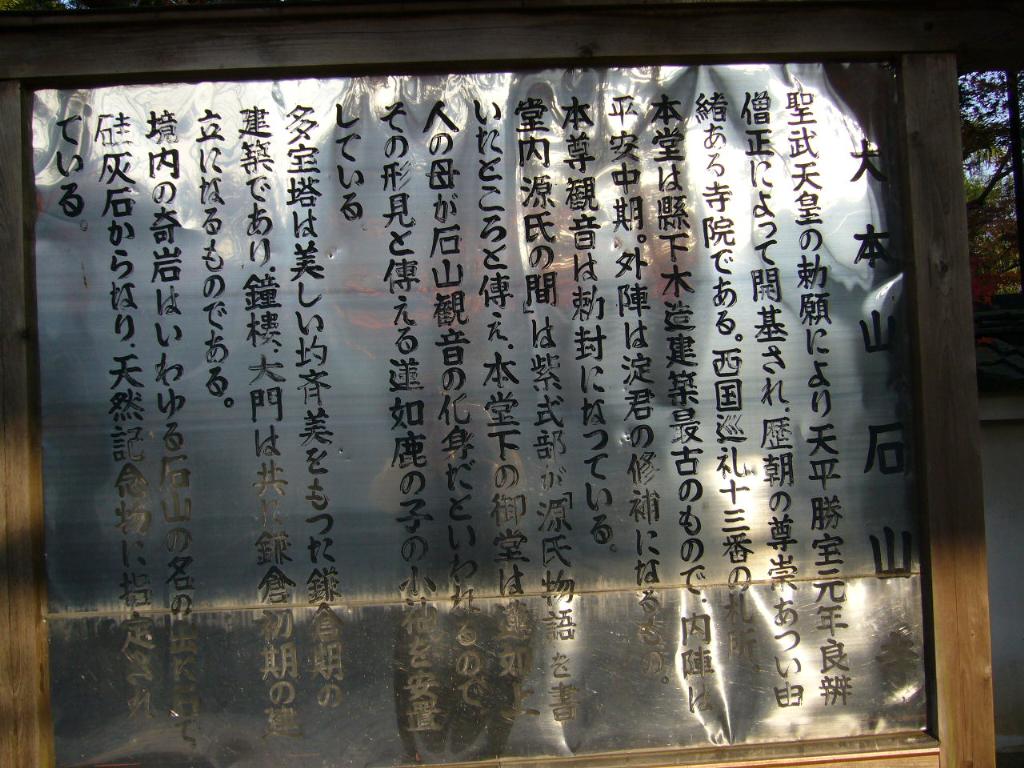 大本山石山寺
聖武天皇の勅願により天平勝宝元年良辨
僧正によって開基され、歴朝の尊崇あつい由
緒ある寺院である。西国巡礼十三番の札所、
本堂は縣下木造建築最古のもので、内陣は
平安中期。外陣は淀君の修補になるもの。
本尊観音は勅封になつている。
堂内「源氏の間」は紫式部が「源氏物語」を書
いたところと傳え、本堂下の御堂は蓮如上
人の母が石山観音の化身だといわれるので
その形見と傳える蓮如鹿の子の小袖を安置
している
多宝塔は美しい均斉美をもつた鎌倉期の
建築であり、鐘樓、大門は共に鎌倉初期の建
立になるものである。
境内の奇岩はいわゆる石山の名の出た石で、
硅灰石からなり、天然記念物に指定され
ている。